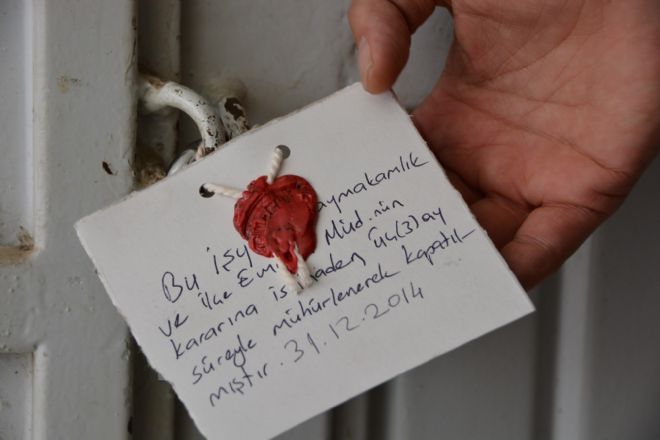 Bu aymakamlık
ve ilçe Em Müd.nün
kararına is aden üç(3) ay
süreyle mühürlenerek kapatıl
mıştır. 31.12.2014